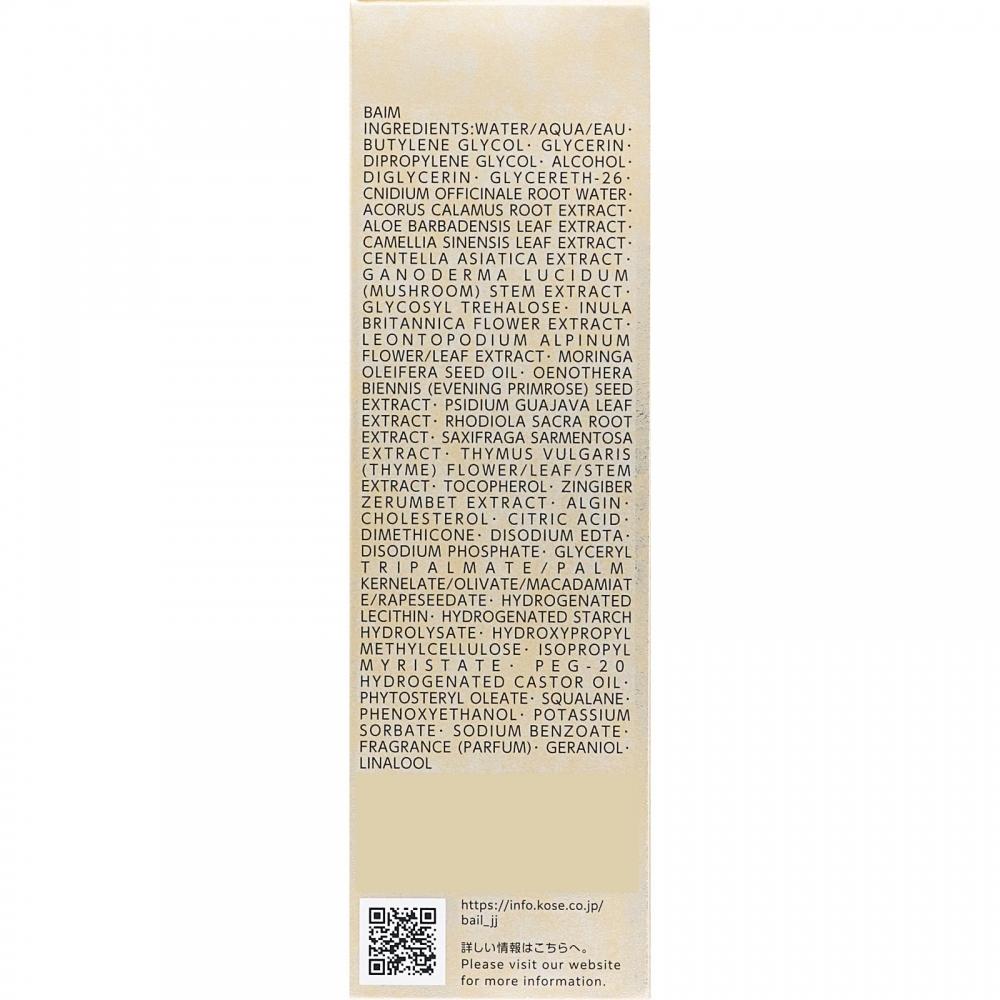 BAIM
INGREDIENTS:WATER/AQUA/EAU·
BUTYLENE GLYCOL· GLYCERIN·
DIPROPYLENE GLYCOL· ALCOHOL·
DIGLYCERIN· GLYCERETH-26·
CNIDIUM OFFICINALE ROOT WATER·
ACORUS CALAMUS ROOT EXTRACT·
ALOE BARBADENSIS LEAF EXTRACT·
CAMELLIA SINENSIS LEAF EXTRACT·
CENTELLA ASIATICA EXTRACT·
GANODERMA LUCIDUM
(MUSHROOM) STEM EXTRACT·
GLYCOSYL TREHALOSE· INULA
BRITANNICA FLOWER EXTRACT·
LEONTOPODIUM ALPINUM
FLOWER/LEAF EXTRACT· MORINGA
OLEIFERA SEED OIL· OENOTHERA
BIENNIS (EVENING PRIMROSE) SEED
EXTRACT· PSIDIUM GUAJAVA LEAF
EXTRACT· RHODIOLA SACRA ROOT
EXTRACT· SAXIFRAGA SARMENTOSA
EXTRACT· THYMUS VULGARIS
(THYME) FLOWER/LEAF/STEM
EXTRACT· TOCOPHEROL· ZINGIBER
ZERUMBET EXTRACT· ALGIN·
CHOLESTEROL· CITRIC ACID·
DIMETHICONE· DISODIUM EDTA·
DISODIUM PHOSPHATE· GLYCERYL
TRIPALMATE/PALM
KERNELATE/OLIVATE/MACADAMIAT
E/RAPESEEDATE· HYDROGENATED
LECITHIN· HYDROGENATED STARCH
HYDROLYSATE· HYDROXYPROPYL
METHYLCELLULOSE· ISOPROPYL
MYRISTATE· PEG-20
HYDROGENATED CASTOR OIL·
PHYTOSTERYL OLEATE· SQUALANE·
PHENOXYETHANOL· POTASSIUM
SORBATE· SODIUM BENZOATE·
FRAGRANCE (PARFUM)· GERANIOL·
LINALOOL
https://info.kose.co.jp/
bail_jj
詳しい情報はこちらへ。
Please visit our website
for more information.